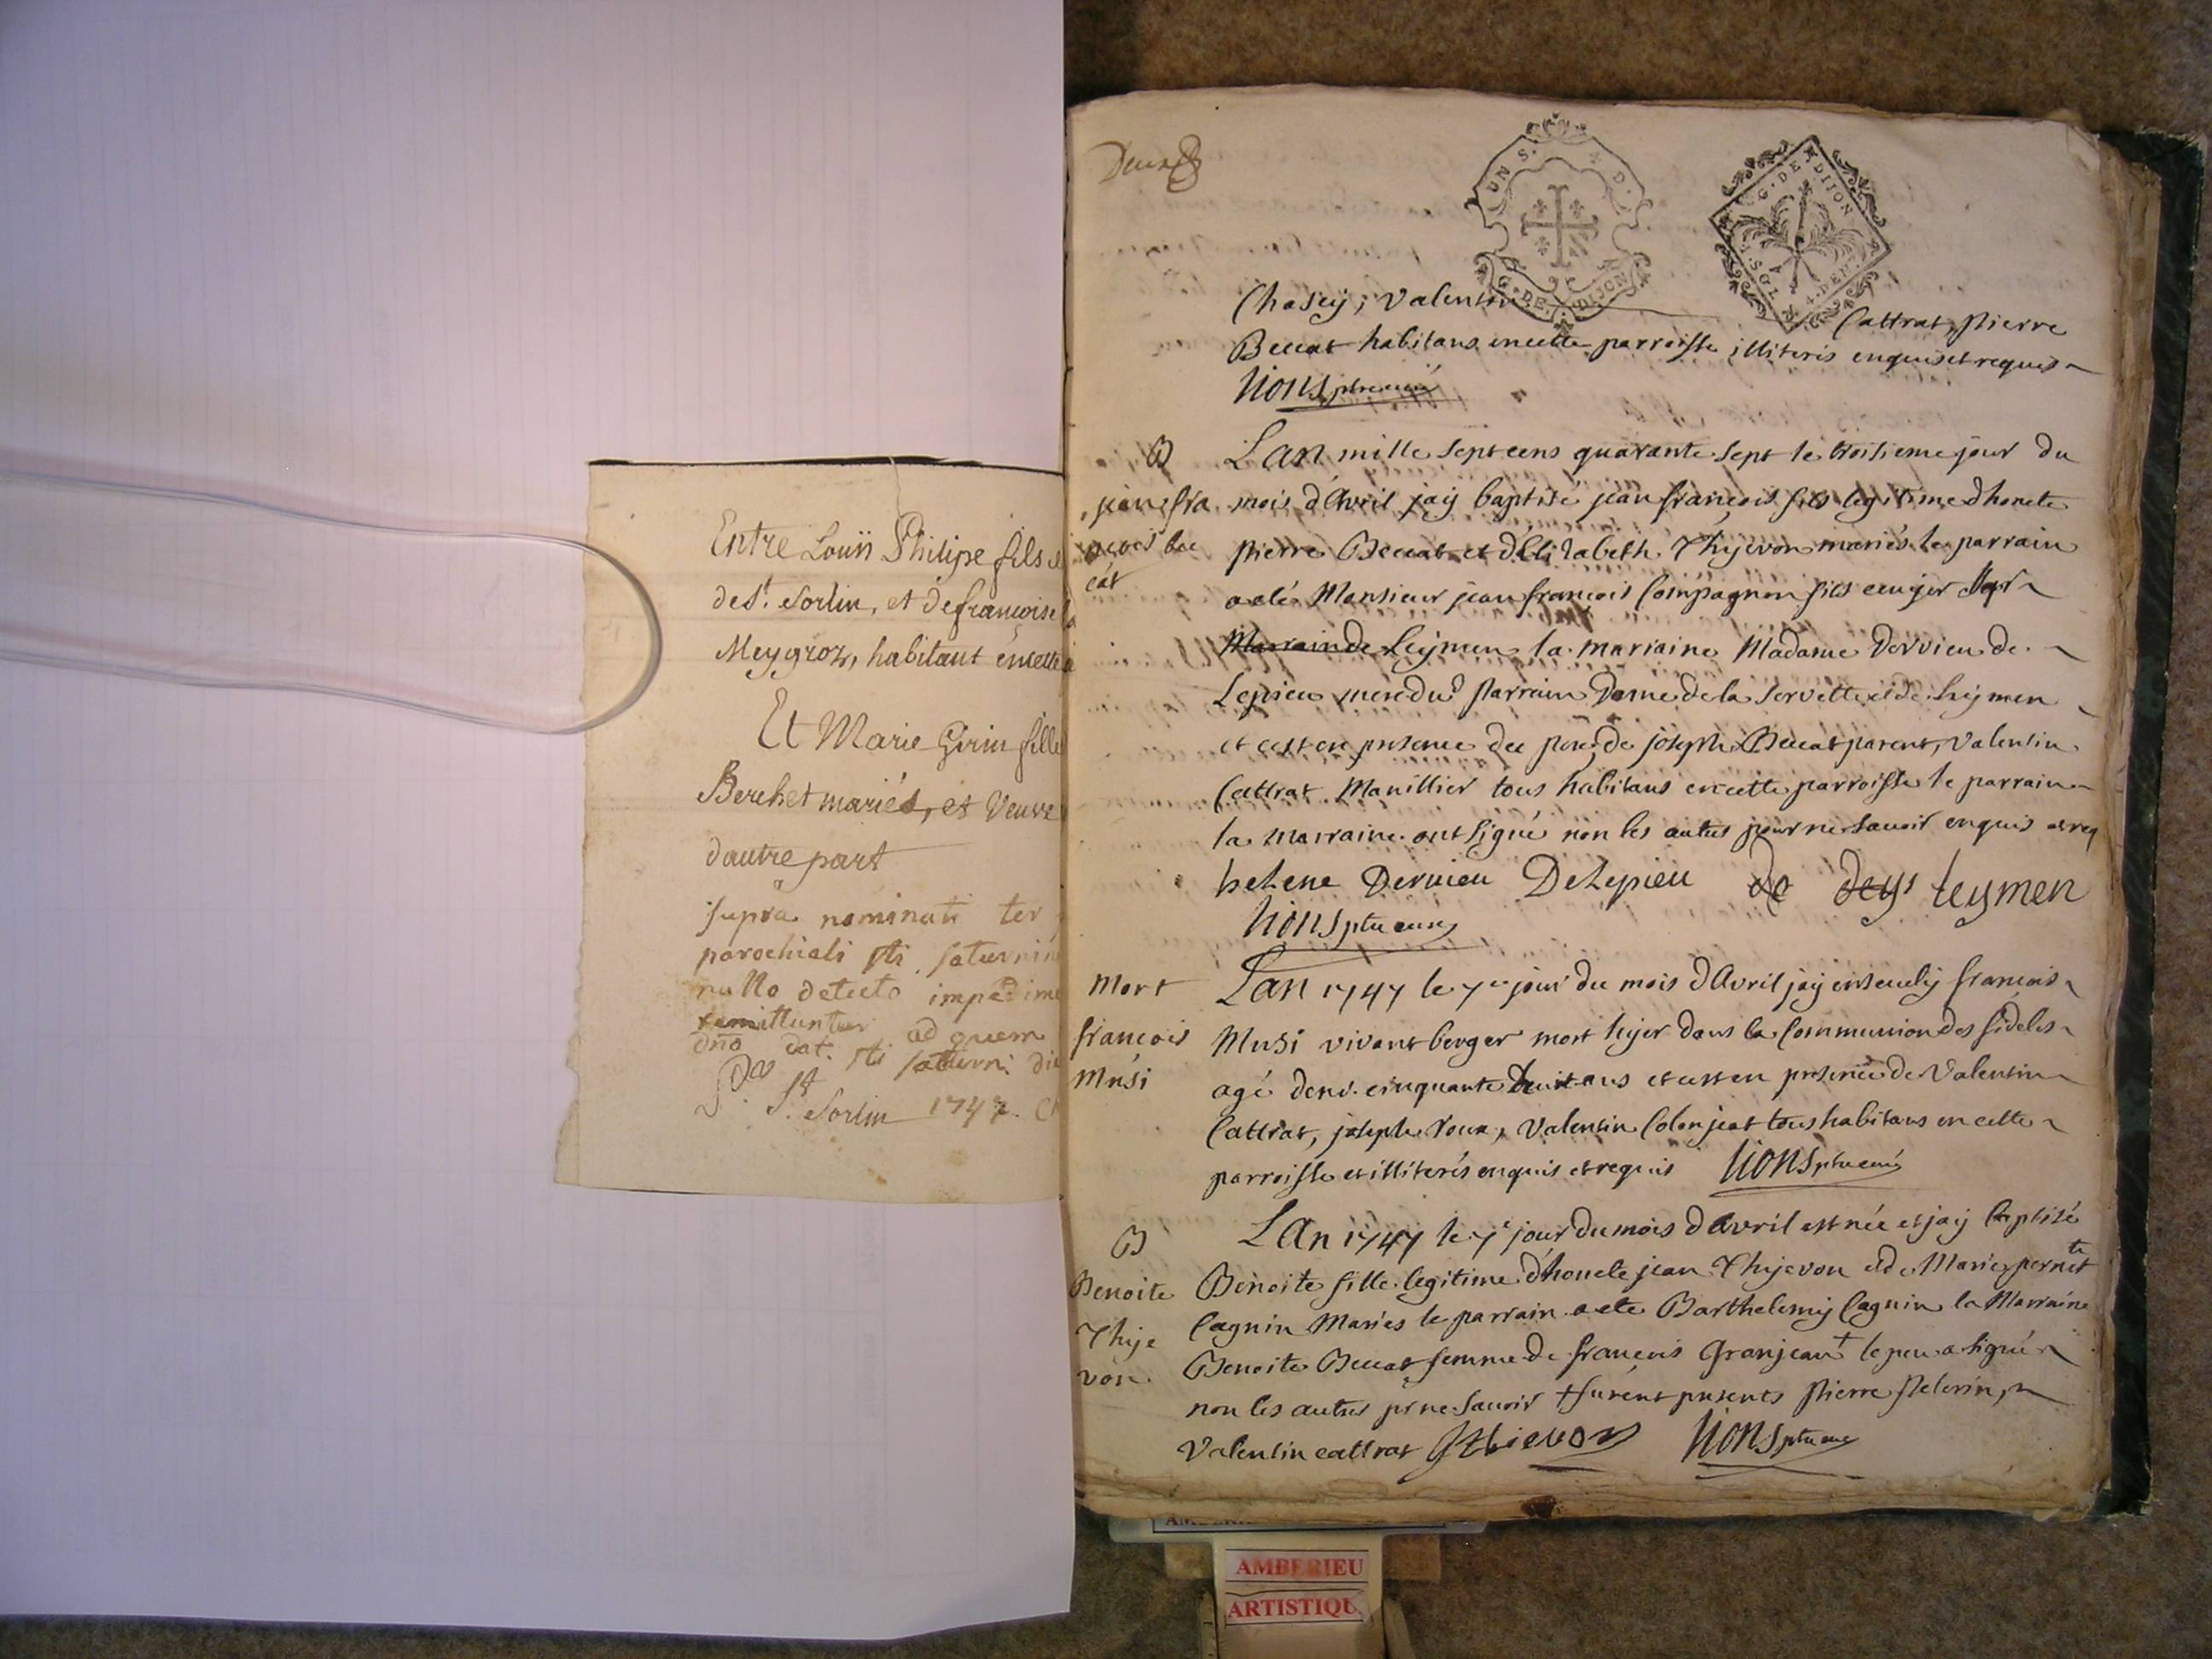 Entre Louis Philipe fils
de St. Sorlin, et de francoise
Meygroz, habitant en cette
Et Marie Girin fille
Berchet mariés, et Veuve
dautre part
supra nominati ter
parochiali Sti saturnin
nullo detecto impedime
remittuntur ad quem
dno dat. Sti saturni die
St. Sorlin 1747.
Deux
UN S. N D.
G. DE. DIJON
G. DE DIJON
SOL 4. DEN
Chasey, Valentin Cattrat, Pierre
Beccat habitans en cette parroisse illiteris enquis et requis
Lions ptre curé
B
jean fra
ncois bec
cat
Lan mille sept cens quarante sept le troisieme jour du
mois d'Avril jaÿ baptisé jean françois fils legitime dhonete
pierre Beccat et d'Elizabeth Thÿevon mariés le parrain
a eté Monsieur jean francois Compagnon fils
Leÿmen la marraine Madame Dervieu de
Lepieu mere dud parrain Dame de la Servette et de Leÿmen
et cest en presence du pere, de joseph Beccat parent, Valentin
Cattrat Manillier tous habitans en cette parroisse le parrain
la marraine ont signé non les autres pour ne savoir enquis et req
helene Dervieu DeLepieu de leymen
Lions ptre curé
Mort
francois
Musi
Lan 1747 le 7e jour du mois d'Avril jaÿ enseuelÿ francois
Musi vivant berger mort hÿer dans la Communion des fideles
agé denv. cinquante huit ans et cest en presence de Valentin
Cattrat, joseph Roux, Valentin Colonjeat tous habitans en cette
parroisse et illiterés enquis et requis Lions ptre curé
B
Benoite
Thÿe
von
LAn 1747 le 7e jour du mois d'Avril est née et jaÿ baptisé
Benoite fille legitime d'honete jean Thÿevon et de Marie pernette
Cagnin Mariés le parrain a ete Barthelemÿ Cagnin la Marraine
Benoite Beccat femme de francois Granjean + le pere a signé
non les autres pr ne savoir + furent presents Pierre Pelerin,
Valentin cattrat JThievon Lions ptre curé
AMBERIEU
ARTISTIQU